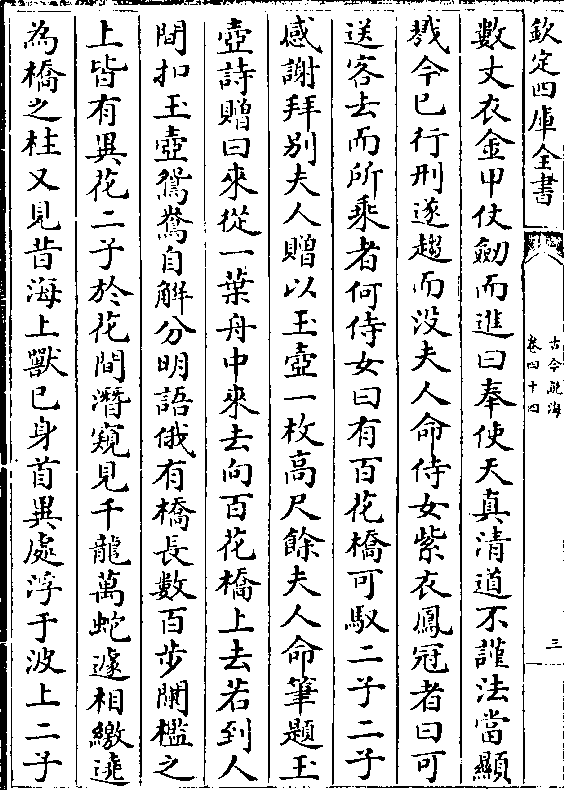 欽定四庫全書
古今說海
卷四十四
三
數丈衣金甲仗劒而進曰奉使天真清道不謹法當顯
戮今已行刑遂趨而没夫人命侍女紫衣鳳冠者曰可
送客去而所乘者何侍女曰有百花橋可馭二子二子
感謝拜别夫人贈以玉壺一枚高尺餘夫人命筆題玉
壺詩贈曰來從一葉舟中來去向百花橋上去若到人
間扣玉壺鴛鴦自解分明語俄有橋長數百步闌檻之
上皆有異花二子於花間潛窺見千龍萬蛇遽相繳遶
為橋之柱又見昔海上獸已身首異處浮于波上二子